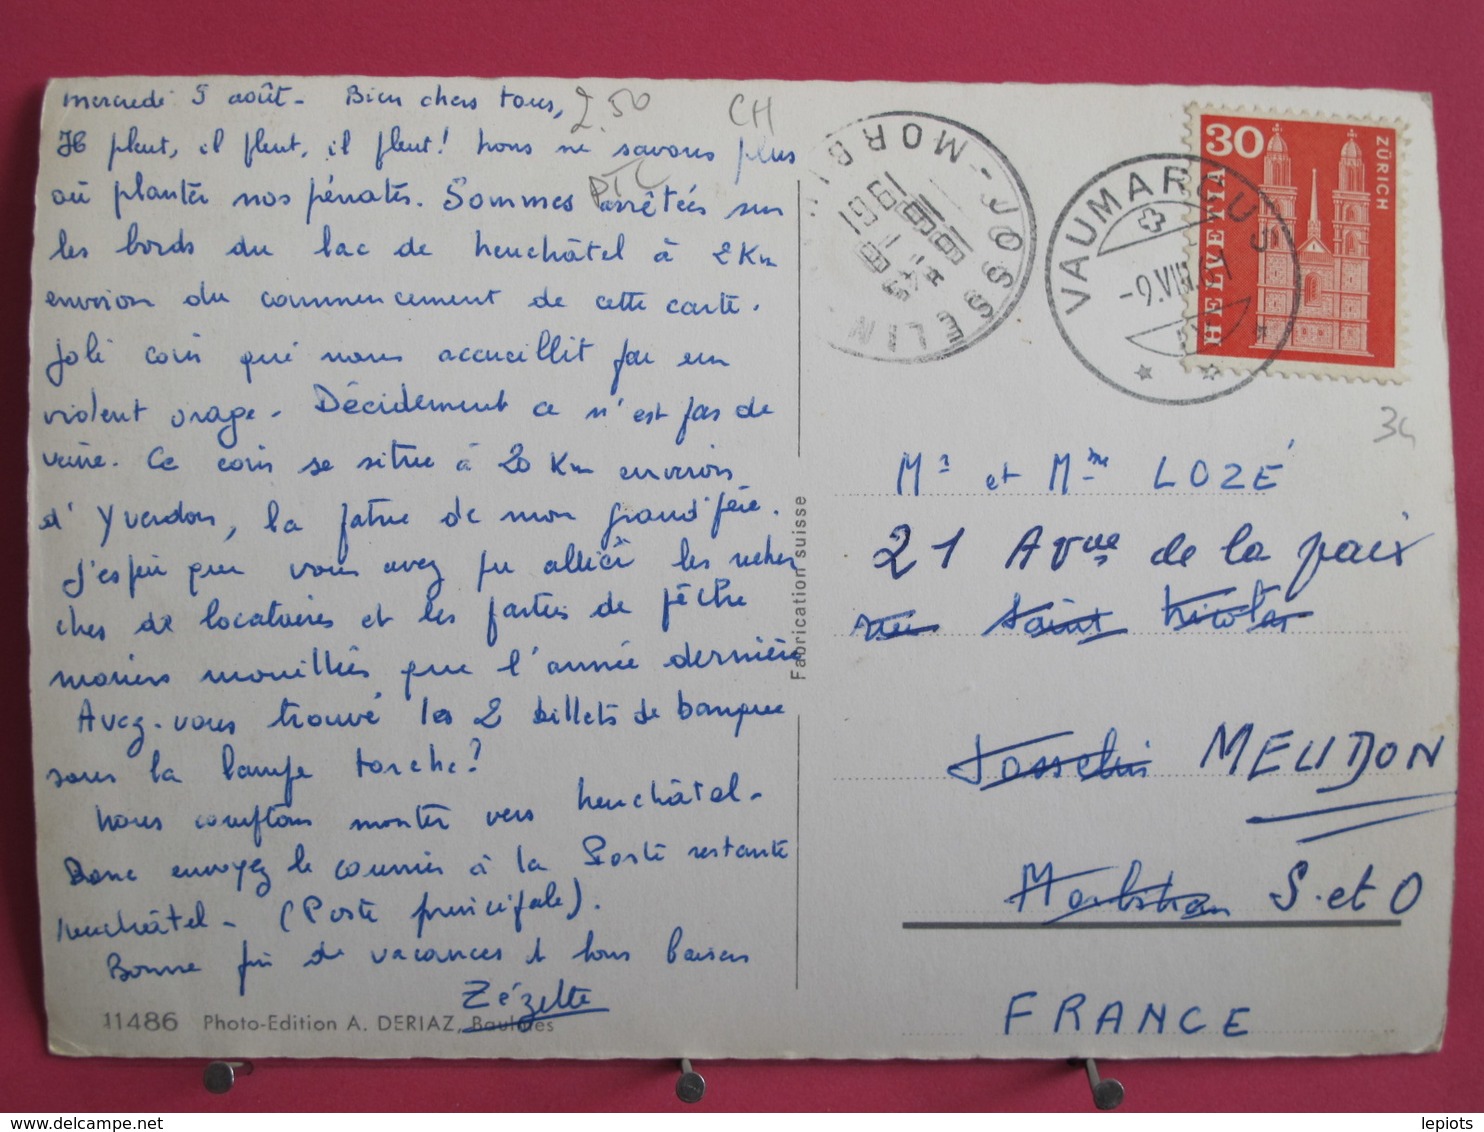 mercredi 9 août - Bien chers tous,
Il pleut, il pleut, il pleut ! nous ne savons plus
où planter nos pénates. Sommes arrêtés sur
les bords du lac de Neuchâtel à 2 Km
environ du commencement de cette carte.
Joli coin qui nous accueillit par un
violent orage. Décidement ce n'est pas de
veine. Ce coin se situe à 20 Km environ
d'Yverdon, la patrie de mon grand père.
J'espère que vous avez pu allier les recher
ches de locataires et les parties de pêche
moins mouillées que l'année dernière
Avez-vous trouvé les 2 billets de banque
sous la lampe torche ?
Nous comptons monter vers Neuchâtel -
Donc envoyez le courrier à la Poste restante
Neuchâtel - (Poste principale).
Bonne fin de vacances et bons baisers
Zézette
11486 Photo-Edition A. DERIAZ, Baulmes
Fabrication suisse
2.50
CH
PTC
JOSSELIN - MORB
VAUMARCUS
-9.VIII.61
30
HELVETIA
ZÜRICH
34
Mr et Mme LOZÉ
21 Avue de la paix
rue Saint Nicolas
Josselin MEUDON
Morbihan S. et O
FRANCE
lepiots